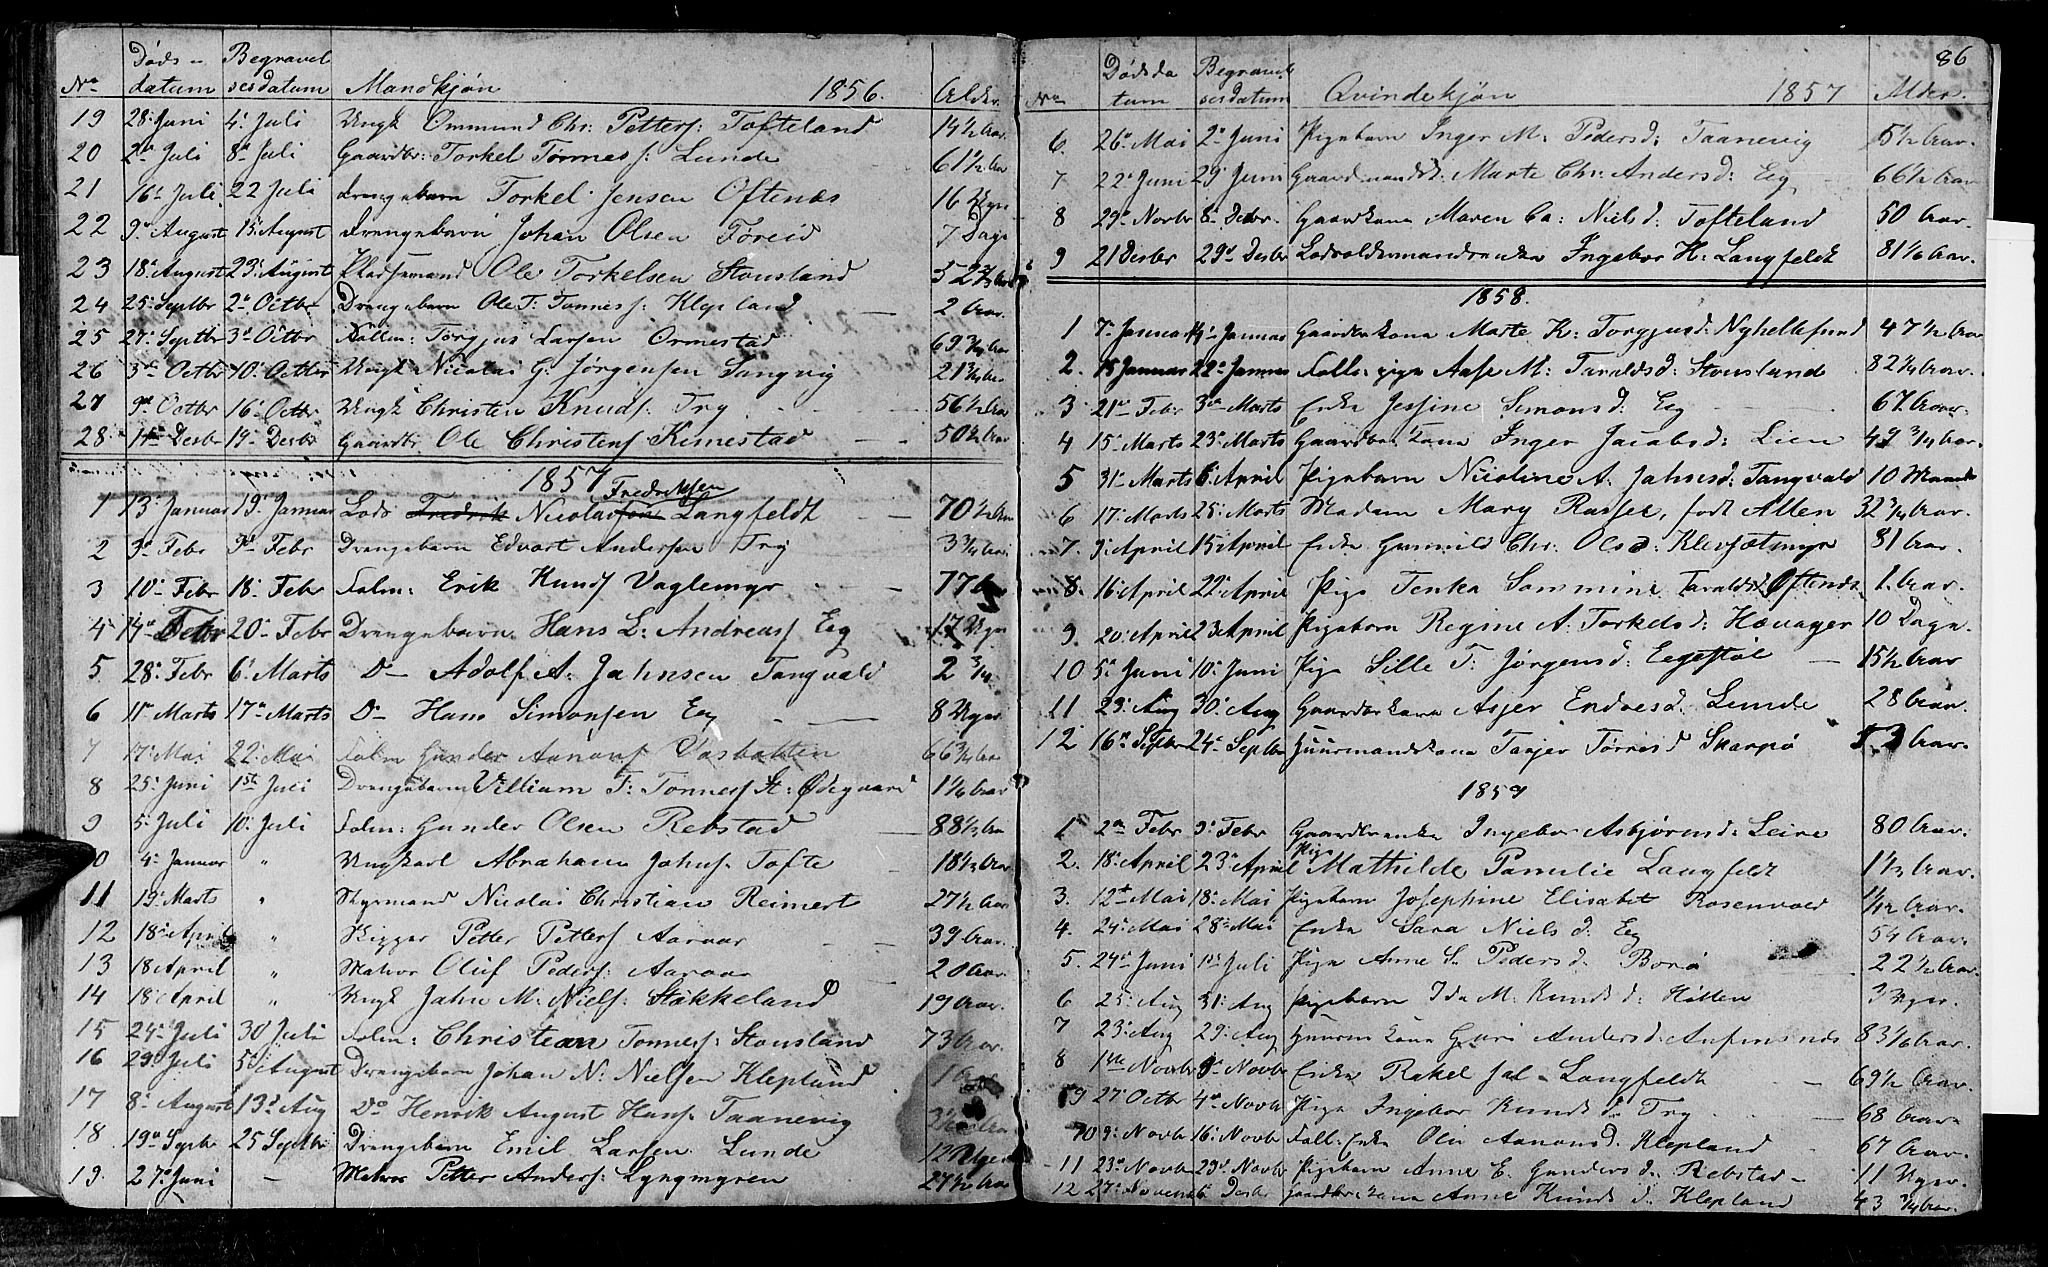 No Dødsdatum Begravelsesdatum Mandkjøn 1856. Alder.
19 28. Juni 4. Juli Ungk Ommund Chr: Petters: Tofteland 14½ Aar
20 2. Juli 8. Juli Gaardbr: Torkel Tønness: Lunde 61½ Aar
21 16. Juli 22 Juli Drengebarn Torkel Jensen Øftenes 16 Uger
22 9. August 15. August Drengebarn Johan Olsen Føreid 7 Dage
23 18. August 23. August Pladsemand Ole Torkelsen Stousland
24 25. Septbr 2. Octbr Drengebarn Ole T: Tønness: Klepland 2 Aar
25 27. Septbr 3. Octbr Follm: Torgjus Larsen Ormestad 69 3/4 Aar
26 3. Octbr 10. Octbr Ungk. Nicolai G. Jørgensen Sangvig 21 3/4 Aar
27 9. Octbr 16. Octbr Ungk Christen Knuds: Try 56½ Aar
28. 11. Desbr 19. Desbr Gaardbr Ole Christens Kimestad 50½ Aar
1857
Fredriksen
1 13. Januar 19. Januar Lods Fredrik Nicolai Langfeldt 70½ Aar
2 3. Febr 9. Febr Drengebarn Edvart Andersen Try 3 3/4 Aar
3 10. Febr 18. Febr Folm: Erik Knuds Vaglemyr 77
4 14. Febr 20. Febr Drengebarn Hans L: Andreass Eeg 17 Uger
5 28. Febr 6. Marts Do Adolf A. Jahnsen Tangvald 2 3/4
6 11. Marts 17. Marts Do Hans Simonsen Eeg 8 Uger
7 17. Mai 22. Mai Folm Gunder Aanons Vasbakken 66 3/4 Aar
8 25. Juni 1st Juli Drengebarn Villiam T: Tønness St: Ødegaard 1¼ Aar
9 5. Juli 10. Juli Folm: Gunder Olsen Rebstad 88½ Aar
10 4. Januar " Ungkarl Abraham Johns: Tofte 18½ Aar
11 19. Marts " Styrmand Nicolai Christian Reimert 27½ Aar
12 18. April " Rigger Petter Petters Aaraar 39 Aar
13 18 April " Matros Oluf Peders: Aaraar 20 Aar
14 18. April " Ungk Jahn M: Niels: Støkkeland 19 Aar
15 24. Juli 30 Juli Folm: Christian Tønness: Stousland 73 Aar
16 29. Juli 5. August Drengebarn Johan N: Nielsen Klepland
17 8. August 13. Aug Do Henrik August Hans: Taanevig
18. 19. Septbr 25 Septbr Drengebarn Emil Larsen Lunde 12 Uger
19. 27. Juni - Matros Petter Anders: Lyngmyren 27½ Aar
86
No Dødsdatum Begravelsesdatum Qvindekjøn 1857 Alder.
6. 26. Mai 2. Juni Pigebarn Inger M: Pedersd: Taanevig 5½ Aar.
7 22. Juni 29. Juni Gaardmandsk Marte Chr: Andersd: Eeg 66½ Aar
8 29. Novbr 6. Desbr. Gaardkona Maren Ca: Nielsd: Tofteland 50 Aar
9 21 Desbr 29. Desbr Lodsoldermandsenke Ingebor H: Langfeldt 81½ Aar.
1858.
1 7. Januar 14. Januar Gaardbrkona Marte K: Torgjusd: Nyhellesund 47½ Aar
2. 15 Januar 22. Januar Follm: pige Aase M: Taraldsd: Stousland 82¼ Aar.
3 21. Febr 3. Marts Enke Jessine Simonsd: Eeg 67 Aar.
4 15. Marts 23. Marts Gaardbr: kona Inger Jacobsd: Lien 49 3/4 Aar.
5 31. Marts 6. April Pigebarn Nicoline A. Jahnsd: Tangvald 10 Maand
6 17. Marts 25. Marts Madam Mary Rasser, født Allen 32 3/4 Aar.
7 9. April 15. April Enke Gunnild Chr: Olsd: Klevsætmyr 81 Aar
8. 16. April 22. April Pige Tenka Sommine Taraldsd: Øftenes 1. Aar.
9. 20. April 23. April Pigebarn Regine A. Torkelsd: Hævager 10 Dage.
10 5. Juni 10. Juni Pige Sille T: Jørgensd: Eegestøl 15½ Aar
11 23. Aug 30. Aug Gaardbrkona Asjer Endresd: Lunde 28 Aar.
12 16. Septbr 24. Septbr Huusmandskona Taajer Tønnesd Skarpø 53 Aar.
1859
1 2. Febr 9. Febr Gaardbrenke Ingebor Asbjørnsd: Leire 80 Aar.
2. 18. April 23. April Pige Mathilde Pamilie Langfeldt 1½ Aar.
3. 12. Mai 18. Mai Pigebarn Josephine Elisabet Rosenvold 1/12 Aar.
4. 24. Mai 28. Mai Enke Sara Nielsd: Eeg 54 Aar.
5. 24. Juni 1st Juli Pige Anne S. Pedersd: Borø 22½ Aar.
6 25. Aug 31. Aug Pigebarn Ida M. Knudsd: Holten 3 Uger.
7 23. Aug 29. Aug Huusmkona Guri Andersd: 83½ Aar.
8 1ste Novbr 8. Novbr Enke Rakel Langfeldt 69½ Aar.
9 27. Octbr 4. Novbr Pige Ingebor Knudsd: Try 68 Aar.
10 9. Novbr 16. Novbr Foll: Enke Oliv Aanonsd: Klepland 67 Aar.
11 23. Novbr 29. Novbr Pigebarn Anne E. Gundersd: Rebstad 11 Uger.
12 27. Novembr 6 Desbr Gaardbr: kona Anne Knudsd: Klepland 43 3/4 Aar.